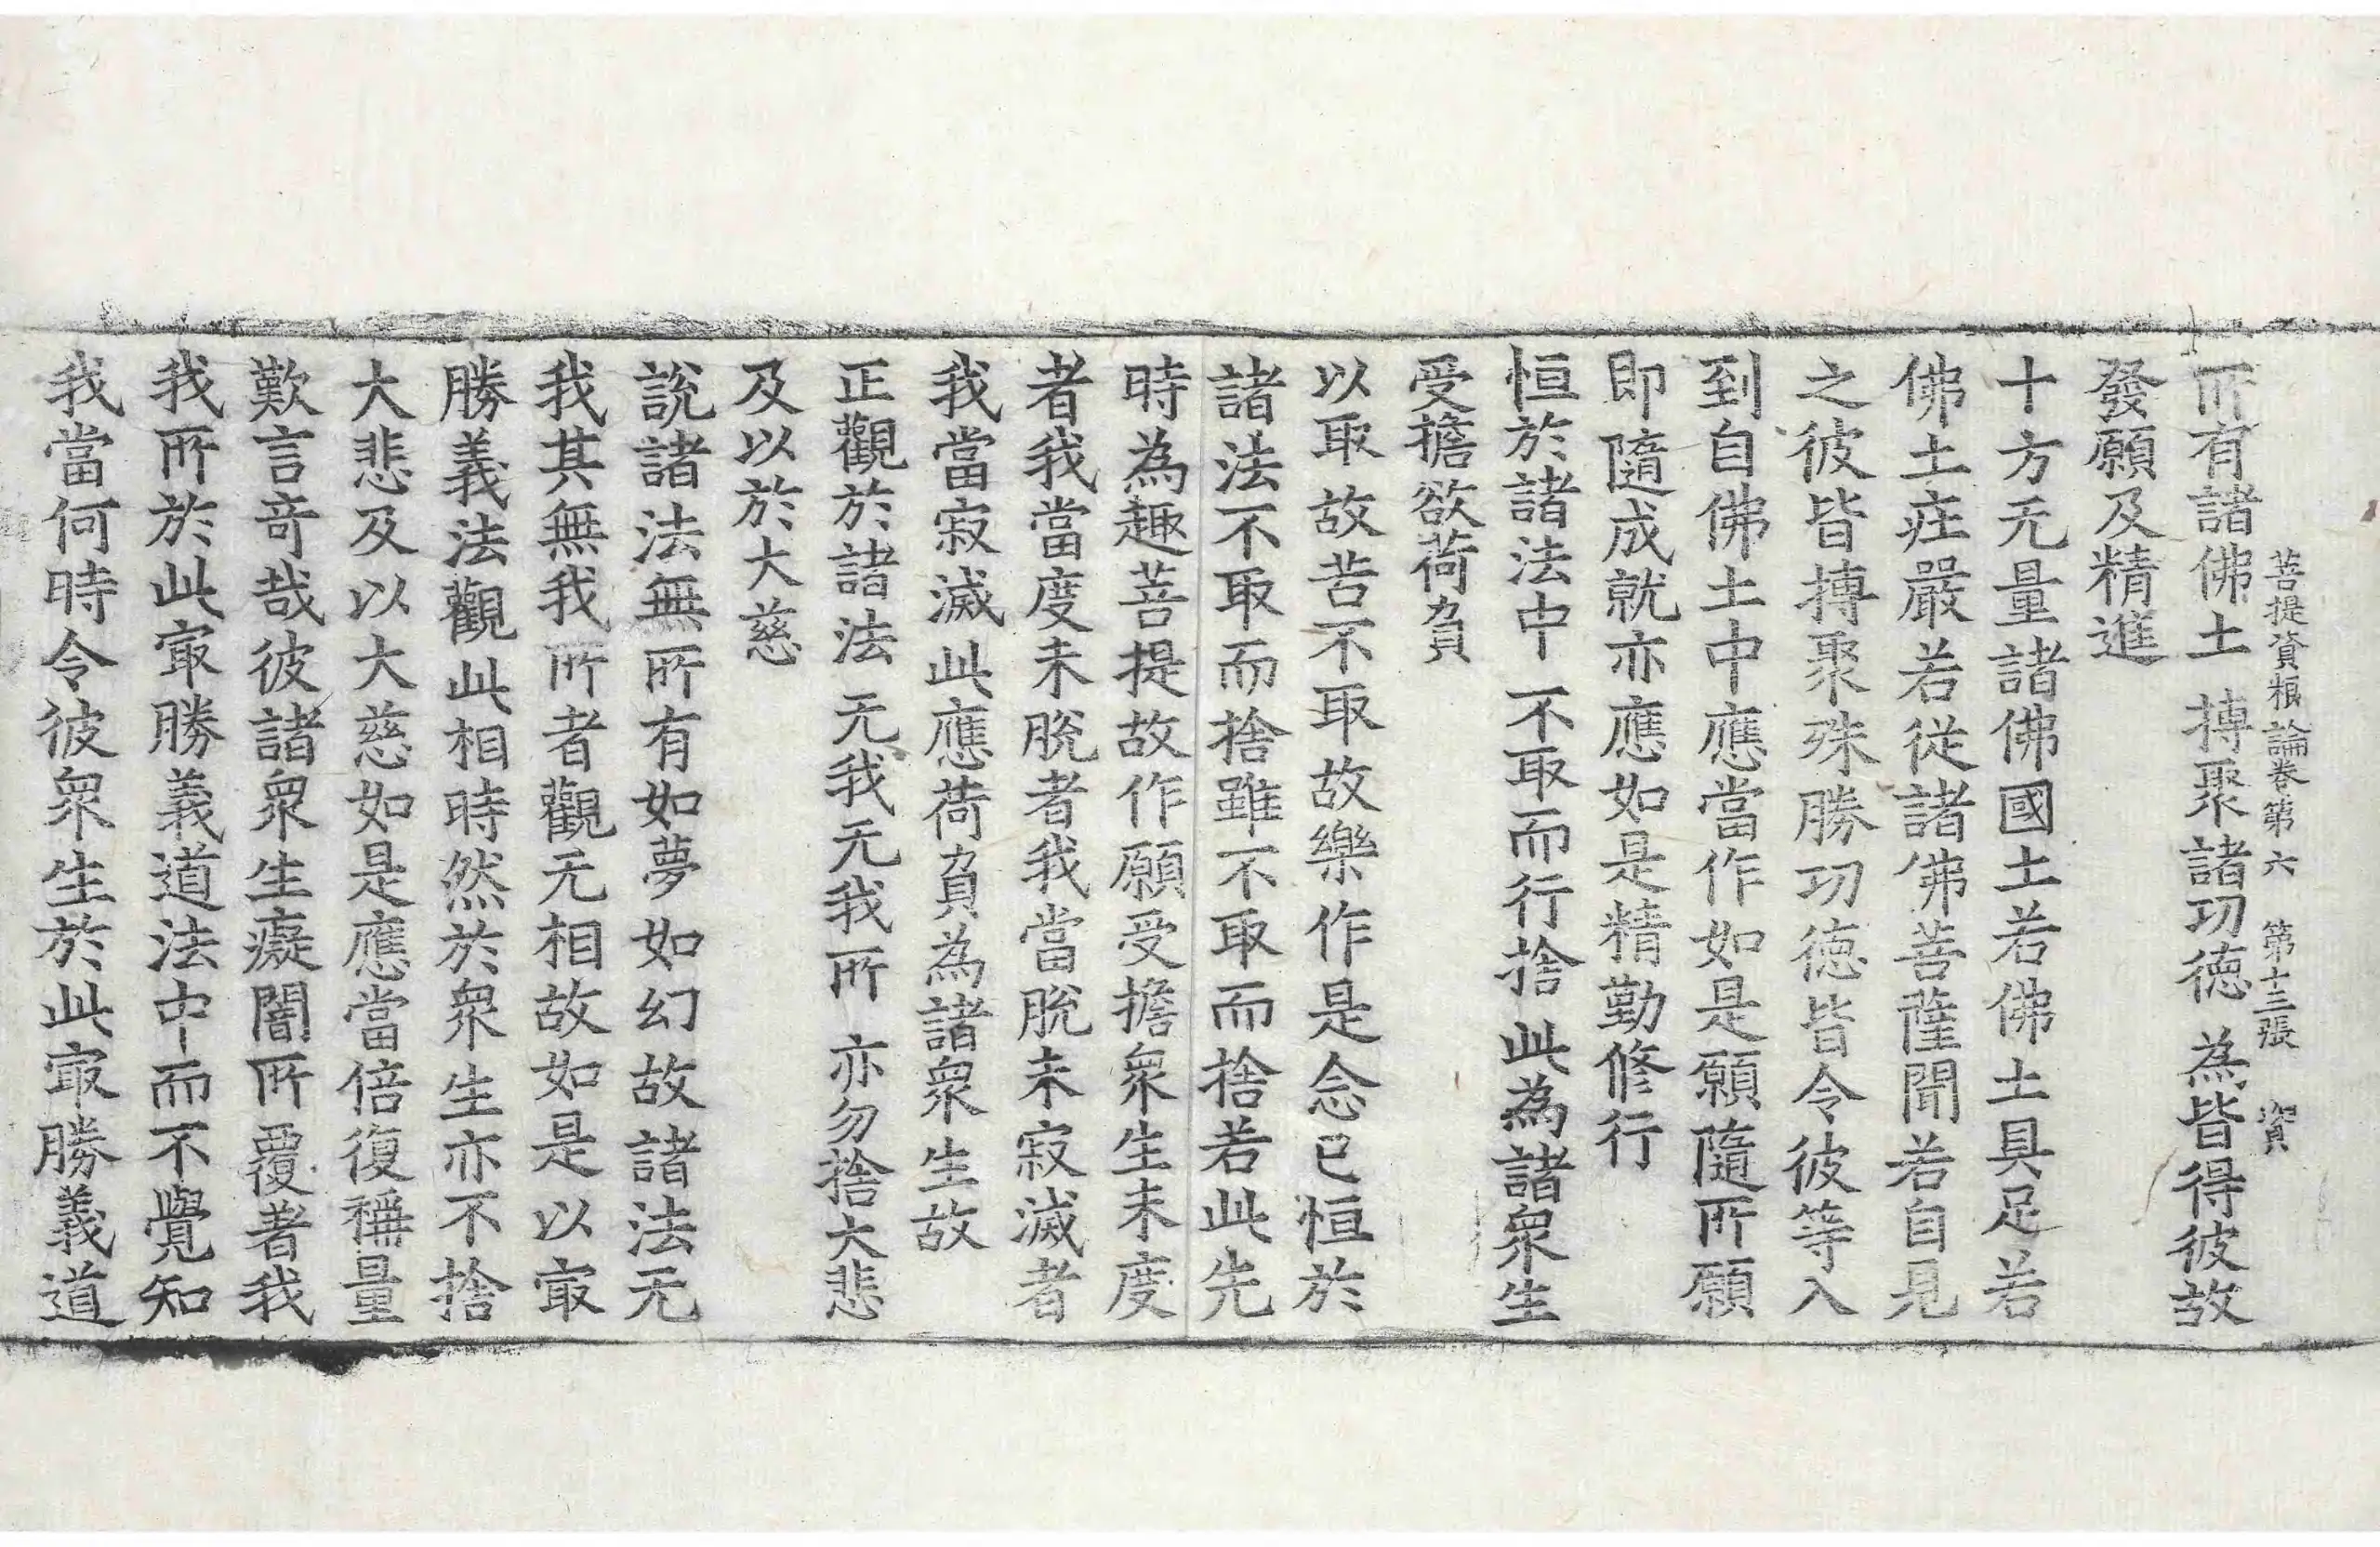 菩提資粮論卷第六 第十三張 賓
所有諸佛土 摶聚諸功德 為皆得彼故
發願及精進
十方无量諸佛國土若佛土具足若
佛土莊嚴若從諸佛菩薩聞若自見
之彼皆摶聚殊勝功德皆令彼等入
到自佛土中應當作如是願隨所願
即隨成就亦應如是精勤修行
恒於諸法中 不取而行捨 此為諸衆生
受擔欲荷負
以取故苦不取故樂作是念已恒於
諸法不取而捨雖不取而捨若此先
時為趣菩提故作願受擔衆生未度
者我當度未脫者我當脫未寂滅者
我當寂滅此應荷負為諸衆生故
正觀於諸法 无我无我所 亦勿捨大悲
及以於大慈
說諸法無所有如夢如幻故諸法无
我其無我所者觀无相故如是以冣
勝義法觀此相時然於衆生亦不捨
大悲及以大慈如是應當倍復稱量
歎言奇哉彼諸衆生癡闇所覆著我
我所於此冣勝義道法中而不覺知
我當何時令彼衆生於此冣勝義道